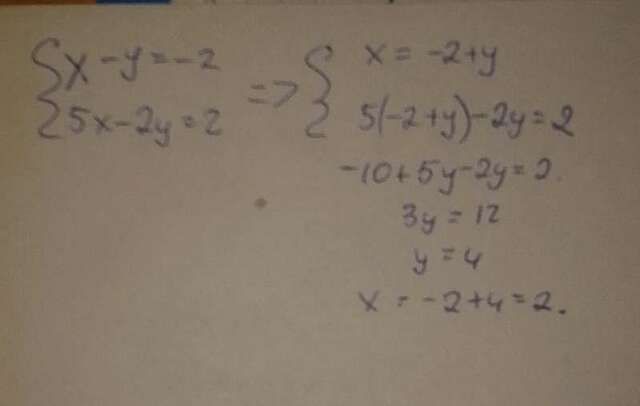 { x - y = -2 => { x = -2+y
5x-2y=2 5(-2+y)-2y=2
-10+5y-2y=2.
3y = 12
y = 4
x = -2+4=2.